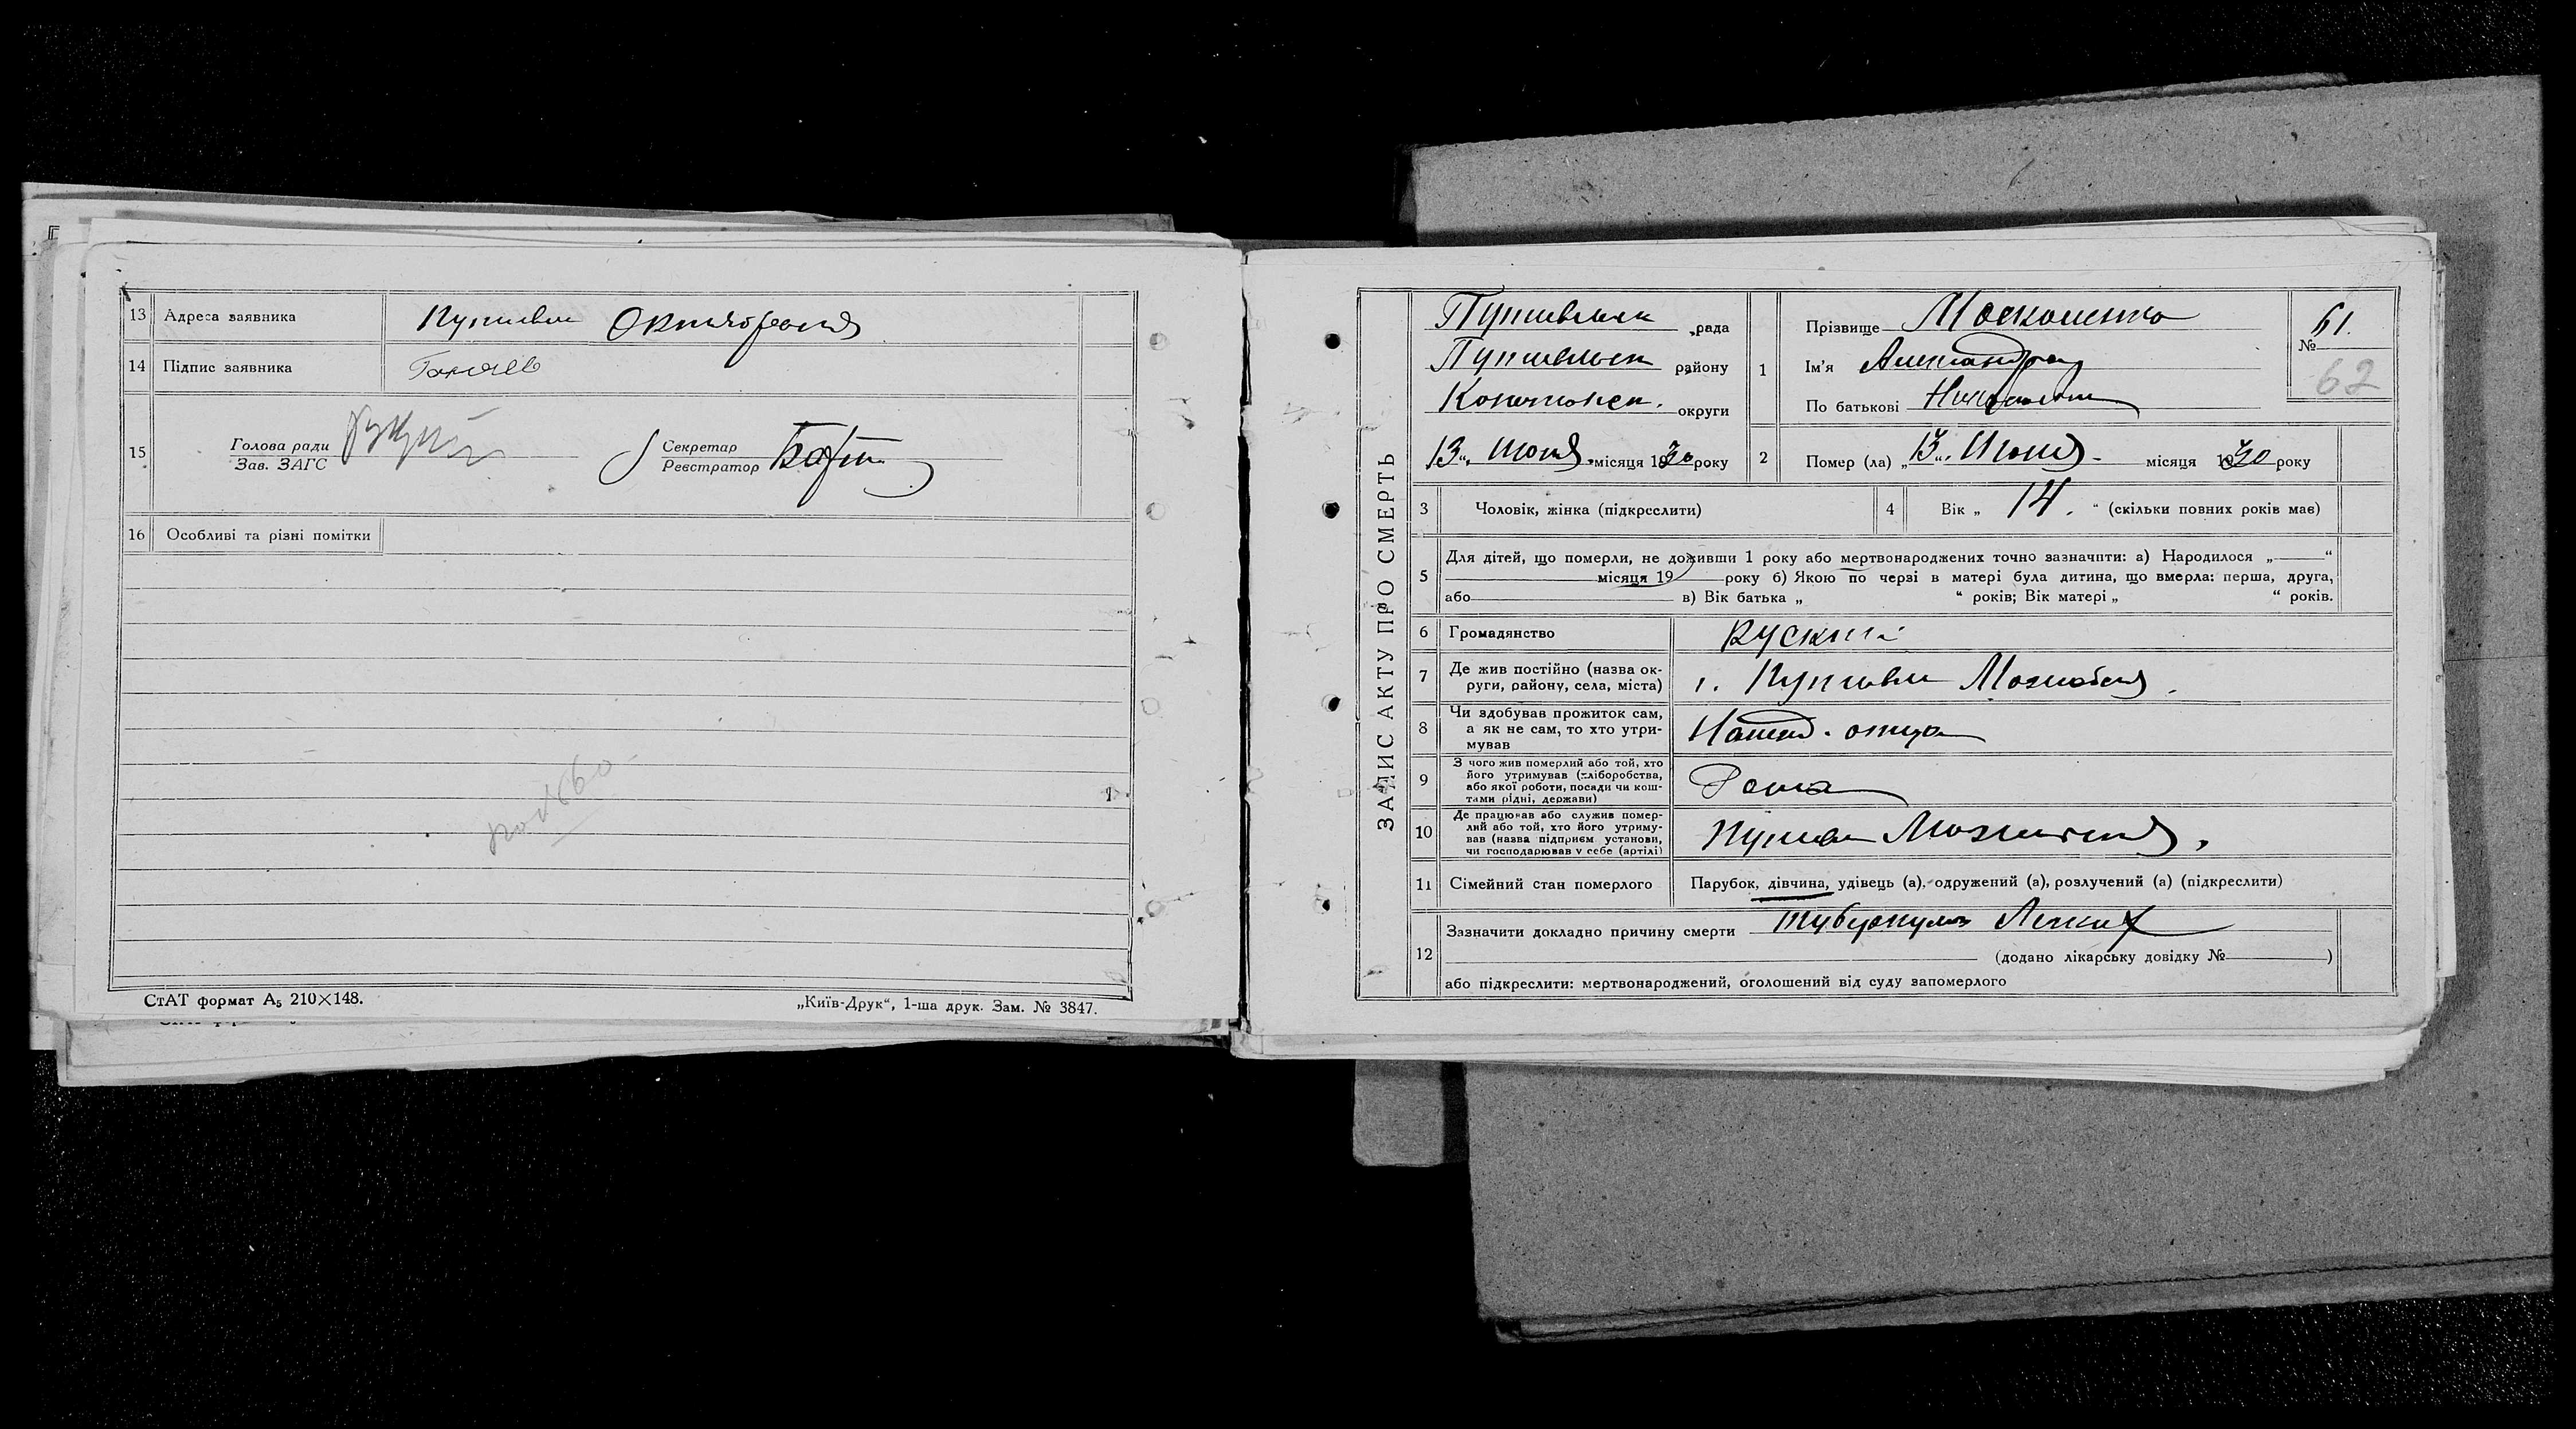 13 Адреса заявника Путивль Октябрьская
14 Підпис заявника
15 Голова ради
Зав. ЗАГС
Секретар
Реєстратор
16 Особливі та різні помітки
СтАТ формат А₅ 210×148.
„Київ-Друк“, 1-ша друк. Зам. № 3847.
ЗАПИС АКТУ ПРО СМЕРТЬ
Путивльск рада
Путивльск району
Конотопск. округи
13 „ Июня місяця 1930 року
1 Прізвище Москаленко
Ім'я Александра
По батькові
№ 61.
62
2 Помер (ла) „13“ Июня місяця 1930 року
3 Чоловік, жінка (підкреслити)
4 Вік „ 14. “ (скільки повних років мав)
5 Для дітей, що померли, не доживши 1 року або мертвонароджених точно зазначити: а) Народилося „ “
місяця 19 року б) Якою по черзі в матері була дитина, що вмерла: перша, друга,
або в) Вік батька „ “ років; Вік матері „ “ років.
6 Громадянство Руский
7 Де жив постійно (назва ок-
руги, району, села, міста) г. Путивль
8 Чи здобував прожиток сам,
а як не сам, то хто утри-
мував отца
9 З чого жив померлий або той, хто
його утримував (хліборобства,
або якої роботи, посади чи кош-
тами рідні, держави)
10 Де працював або служив помер-
лий або той, хто його утриму-
вав (назва підприєм установи,
чи господарював у себе (артілі) Путивль
11 Сімейний стан померлого Парубок, дівчина, удівець (а), одружений (а), розлучений (а) (підкреслити)
12 Зазначити докладно причину смерті туберкулез Легких
(додано лікарську довідку № )
або підкреслити: мертвонароджений, оголошений від суду запомерлого